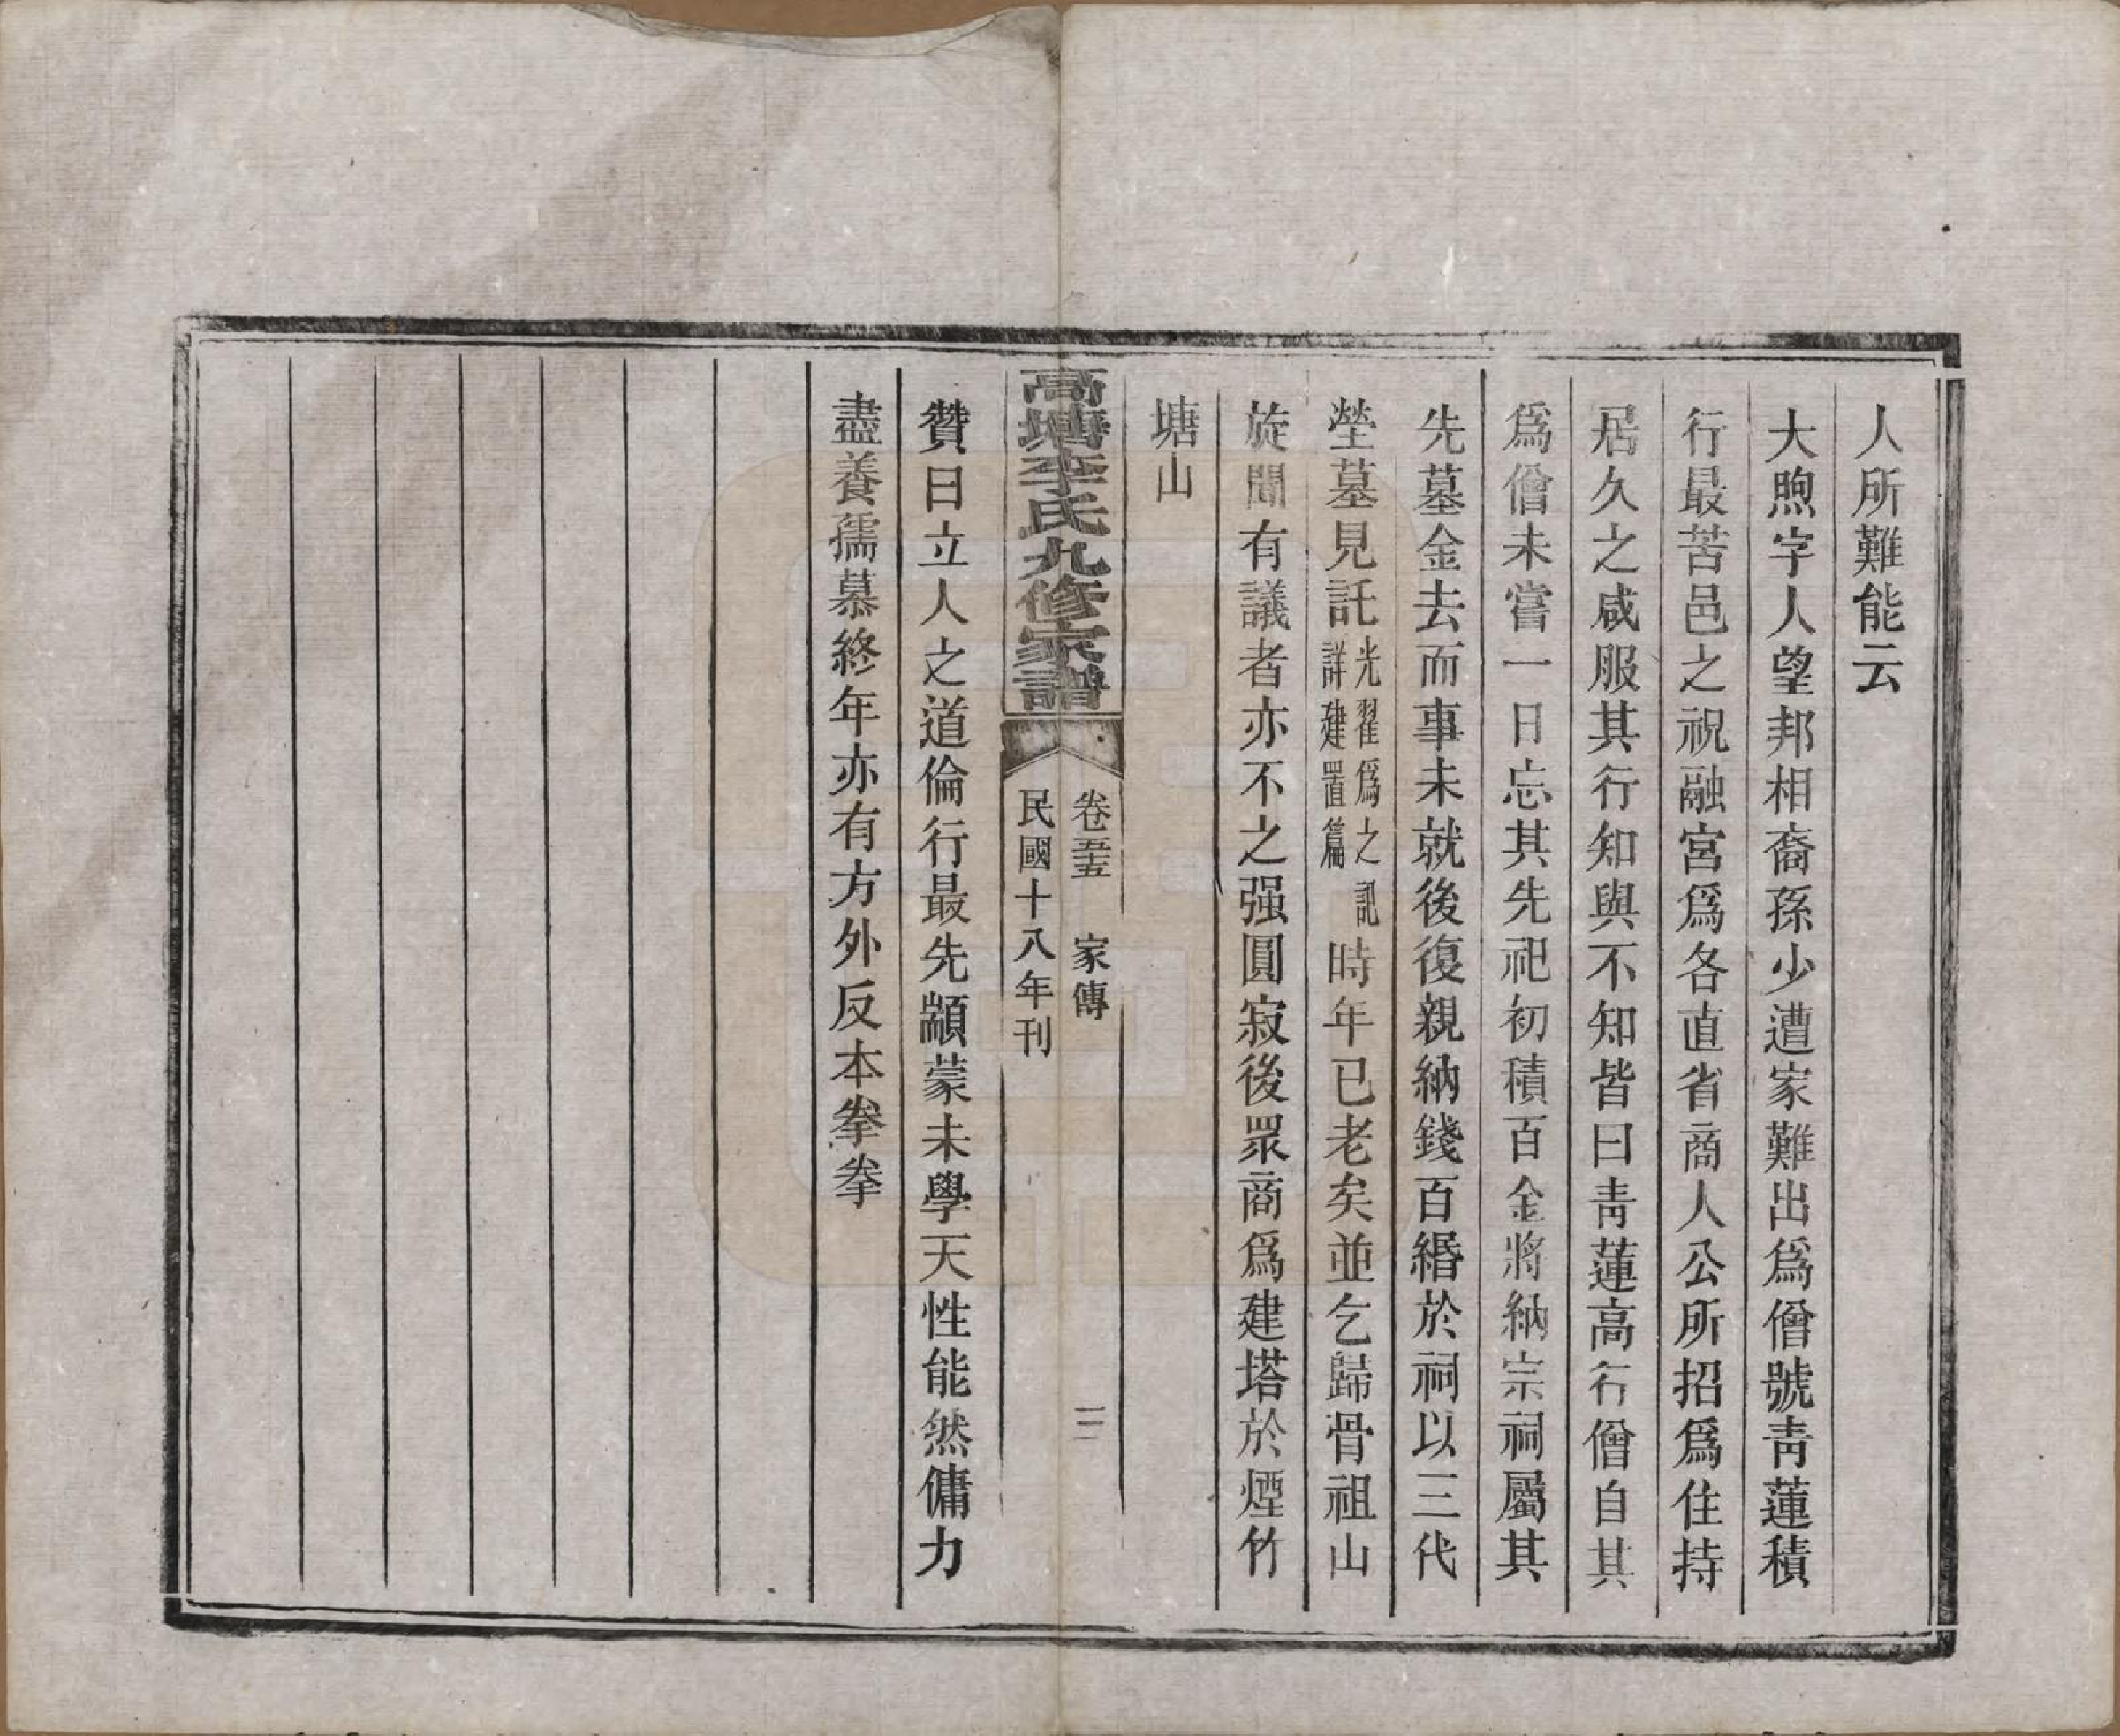 人所難能云
大煦字人望邦相裔孫少遭家難出爲僧號靑蓮積
行最苦邑之祝融宮爲各直省商人公所招爲住持
居久之咸服其行知與不知皆曰靑蓮高行僧自其
爲僧未嘗一日忘其先祀初積百金將納宗祠屬其
先墓金去而事未就後復親納錢百緡於祠以三代
塋墓見託光翟爲之記詳建置篇時年已老矣並乞歸骨祖山
旋聞有議者亦不之强圓寂後眾商爲建塔於煙竹
塘山
高塘李氏九修家譜
卷五 家傳
二
民國十八年刊
贊曰立人之道倫行最先顓蒙未學天性能然傭力
盡養孺慕終年亦有方外反本拳拳